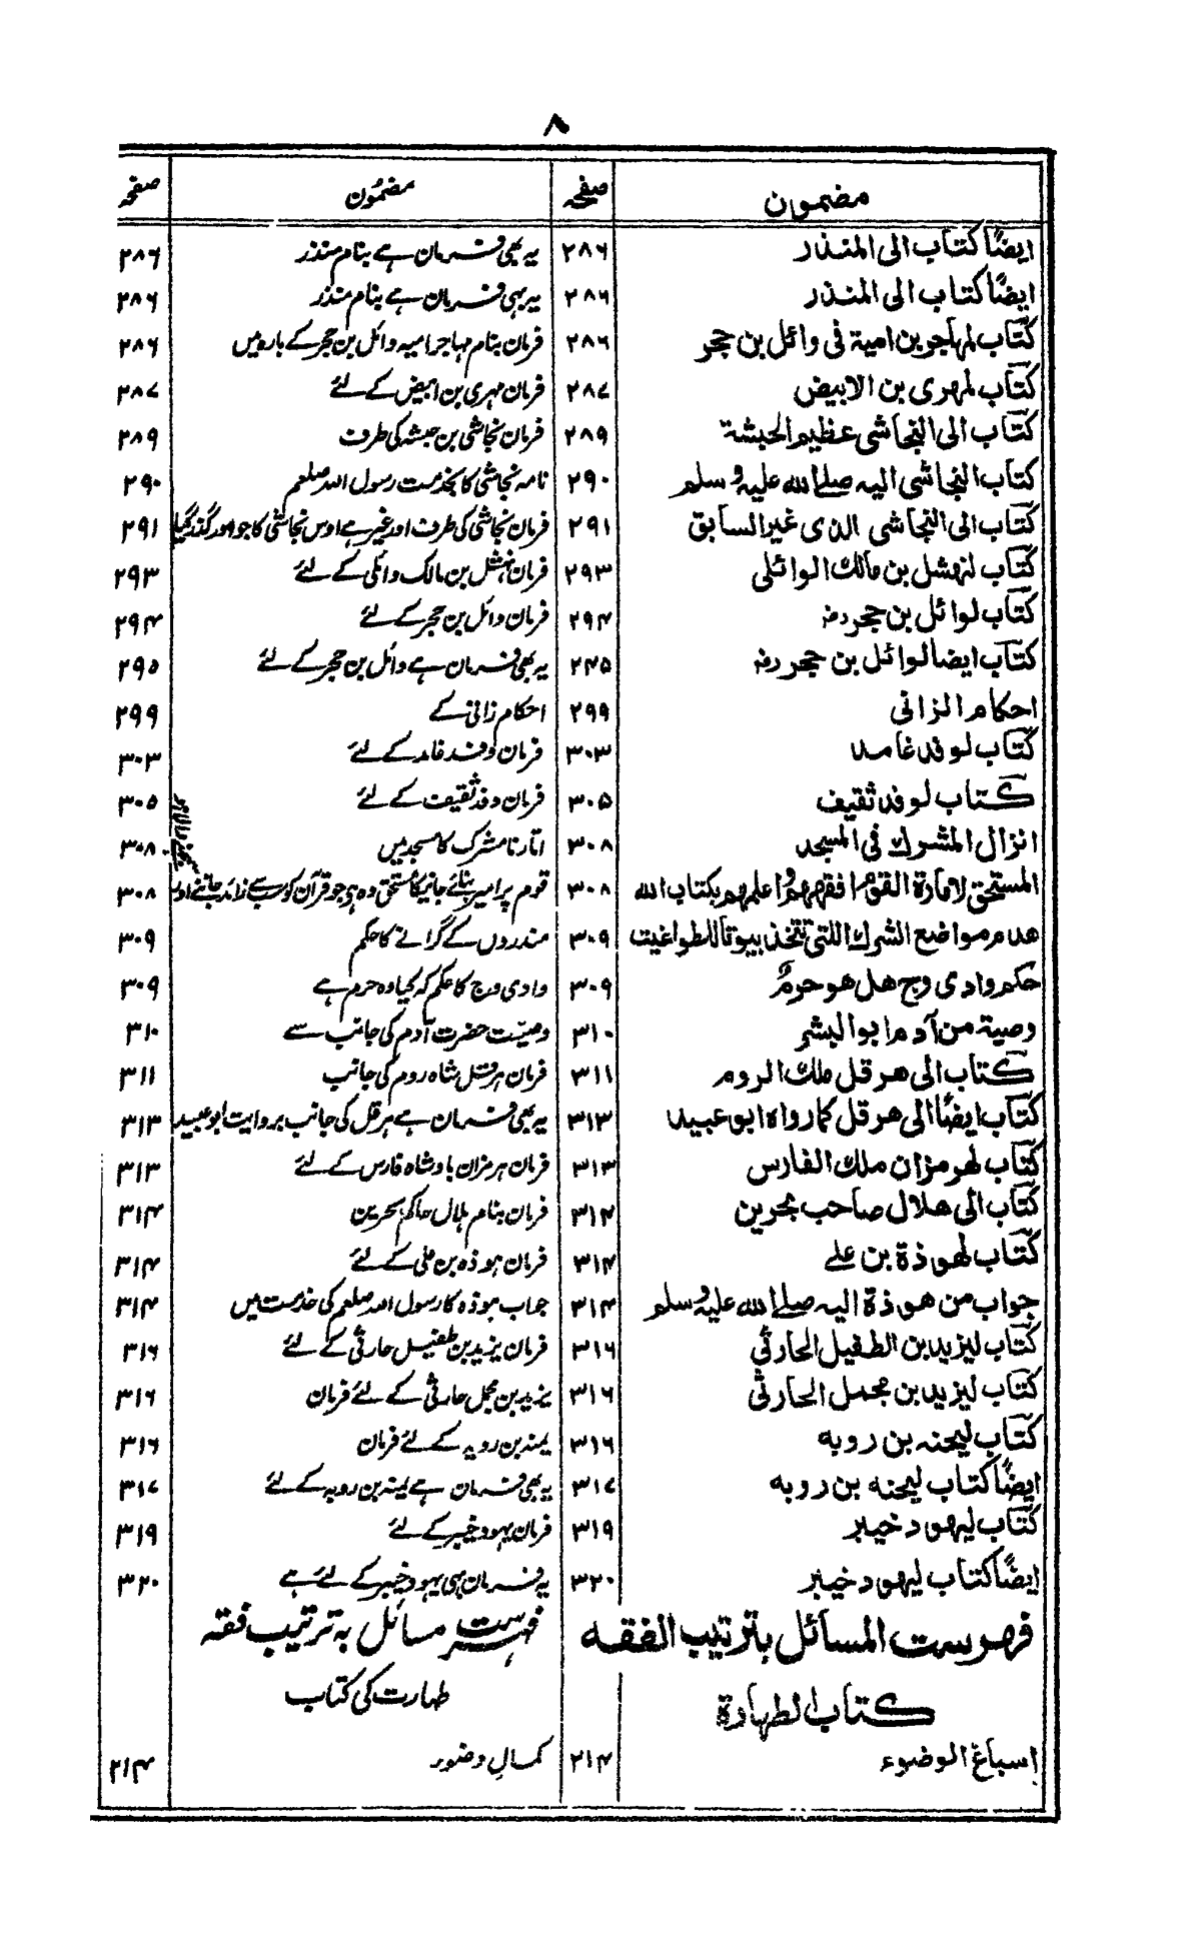 ۸
مضمون صفحہ مضمون صفحہ
ایضًا کتاب الی المنذار ۲۸۶ یہ بھی فرمان ہے بنام منذر ۲۸۶
ایضًا کتاب الی المنذر ۲۸۶ یہ بہی فرمان ہے بنام منذر ۲۸۶
کتاب لمہاجر بن امیة فی وائل بن حجر ۲۸۶ فرمان بنام مہاجر امیہ وائل بن حجر کے بارہ میں ۲۸۶
کتاب لمہری بن الابیض ۲۸۷ فرمان مہری بن ابیض کے لئے ۲۸۷
کتاب الی النجاشی عظیم الحبشة ۲۸۹ فرمان نجاشی بن حبشہ کی طرف ۲۸۹
کتاب النجاشی الیہ صلے اللہ علیہ وسلم ۲۹۰ نامہ نجاشی کا بخدمت رسول اللہ صلعم ۲۹۰
کتاب الی النجاشی الذی غیر السابق ۲۹۱ فرمان نجاشی کی طرف اور غیر ہے اوس نجاشی کا جو اوپر گذر گیا ۲۹۱
کتاب لنہشل بن مالک الوائلی ۲۹۳ فرمان نہشل بن مالک وائلی کے لئے ۲۹۳
کتاب لوائل بن حجر رضہ ۲۹۴ فرمان وائل بن حجر کے لئے ۲۹۴
کتاب ایضا لوائل بن حجر رضہ ۲۴۵ یہ بھی فرمان ہے وائل بن حجر کے لئے ۲۹۵
احکام الزانی ۲۹۹ احکام زانی کے ۲۹۹
کتاب لوفد غامد ۳۰۳ فرمان وفد غامد کے لئے ۳۰۳
کتاب لوفد ثقیف ۳۰۵ فرمان وفد ثقیف کے لئے ۳۰۵
انزال المشرک فی المسجد ۳۰۸ اتارنا مشرک کا مسجد میں ۳۰۸
المستحق لامارة القوم افقہهم و اعلمهم بکتاب اللہ ۳۰۸ قوم پر امیر بنائے جانیکا مستحق وہ ہے جو قرآن کو سب سے زائد جانے اور ۳۰۸
هدم مواضع الشرک اللتی تتخذ بیوتا للطواغیت ۳۰۹ مندروں کے گرانے کا حکم ۳۰۹
حکم وادی وج هل هو حرمٌ ۳۰۹ وادی وج کا حکم کہ کیا وہ حرم ہے ۳۰۹
وصیة من آدم ابو البشر ۳۱۰ وصیّت حضرت آدم کی جانب سے ۳۱۰
کتاب الی هرقل ملک الروم ۳۱۱ فرمان ہرقل شاہ روم کی جانب ۳۱۱
کتاب ایضًا الی هرقل کما رواہ ابو عبید ۳۱۳ یہ بھی فرمان ہے ہرقل کی جانب بروایت ابو عبید ۳۱۳
کتاب لهرمزان ملک الفارس ۳۱۳ فرمان ہرمزان بادشاہ فارس کے لئے ۳۱۳
کتاب الی هلال صاحب بحرین ۳۱۴ فرمان بنام ہلال حاکم بحرین ۳۱۴
کتاب لهوذة بن علی ۳۱۴ فرمان ہوذہ بن علی کے لئے ۳۱۴
جواب من هوذة الیہ صلے اللہ علیہ وسلم ۳۱۴ جواب ہوذہ کا رسول اللہ صلعم کی خدمت میں ۳۱۴
کتاب لیزید بن الطفیل الحارثی ۳۱۶ فرمان یزید بن طفیل حارثی کے لئے ۳۱۶
کتاب لیزید بن محمل الحارثی ۳۱۶ یزید بن محمل حارثی کے لئے فرمان ۳۱۶
کتاب لیحنہ بن روبہ ۳۱۶ یمنہ بن روبہ کے لئے فرمان ۳۱۶
ایضًا کتاب لیحنہ بن روبہ ۳۱۷ یہ بھی فرمان ہے یمنہ بن روبہ کے لئے ۳۱۷
کتاب لیہود خیبر ۳۱۹ فرمان یہود خیبر کے لئے ۳۱۹
ایضًا کتاب لیہود خیبر ۳۲۰ یہ فرمان بہی یہود خیبر کے لئے ہے ۳۲۰
فہرست المسائل بترتیب الفقہ فہرست مسائل بہ ترتیب فقہ
کتاب الطہارة طہارت کی کتاب
اسباغ الوضوء ۲۱۴ کمالِ وضوء ۲۱۴